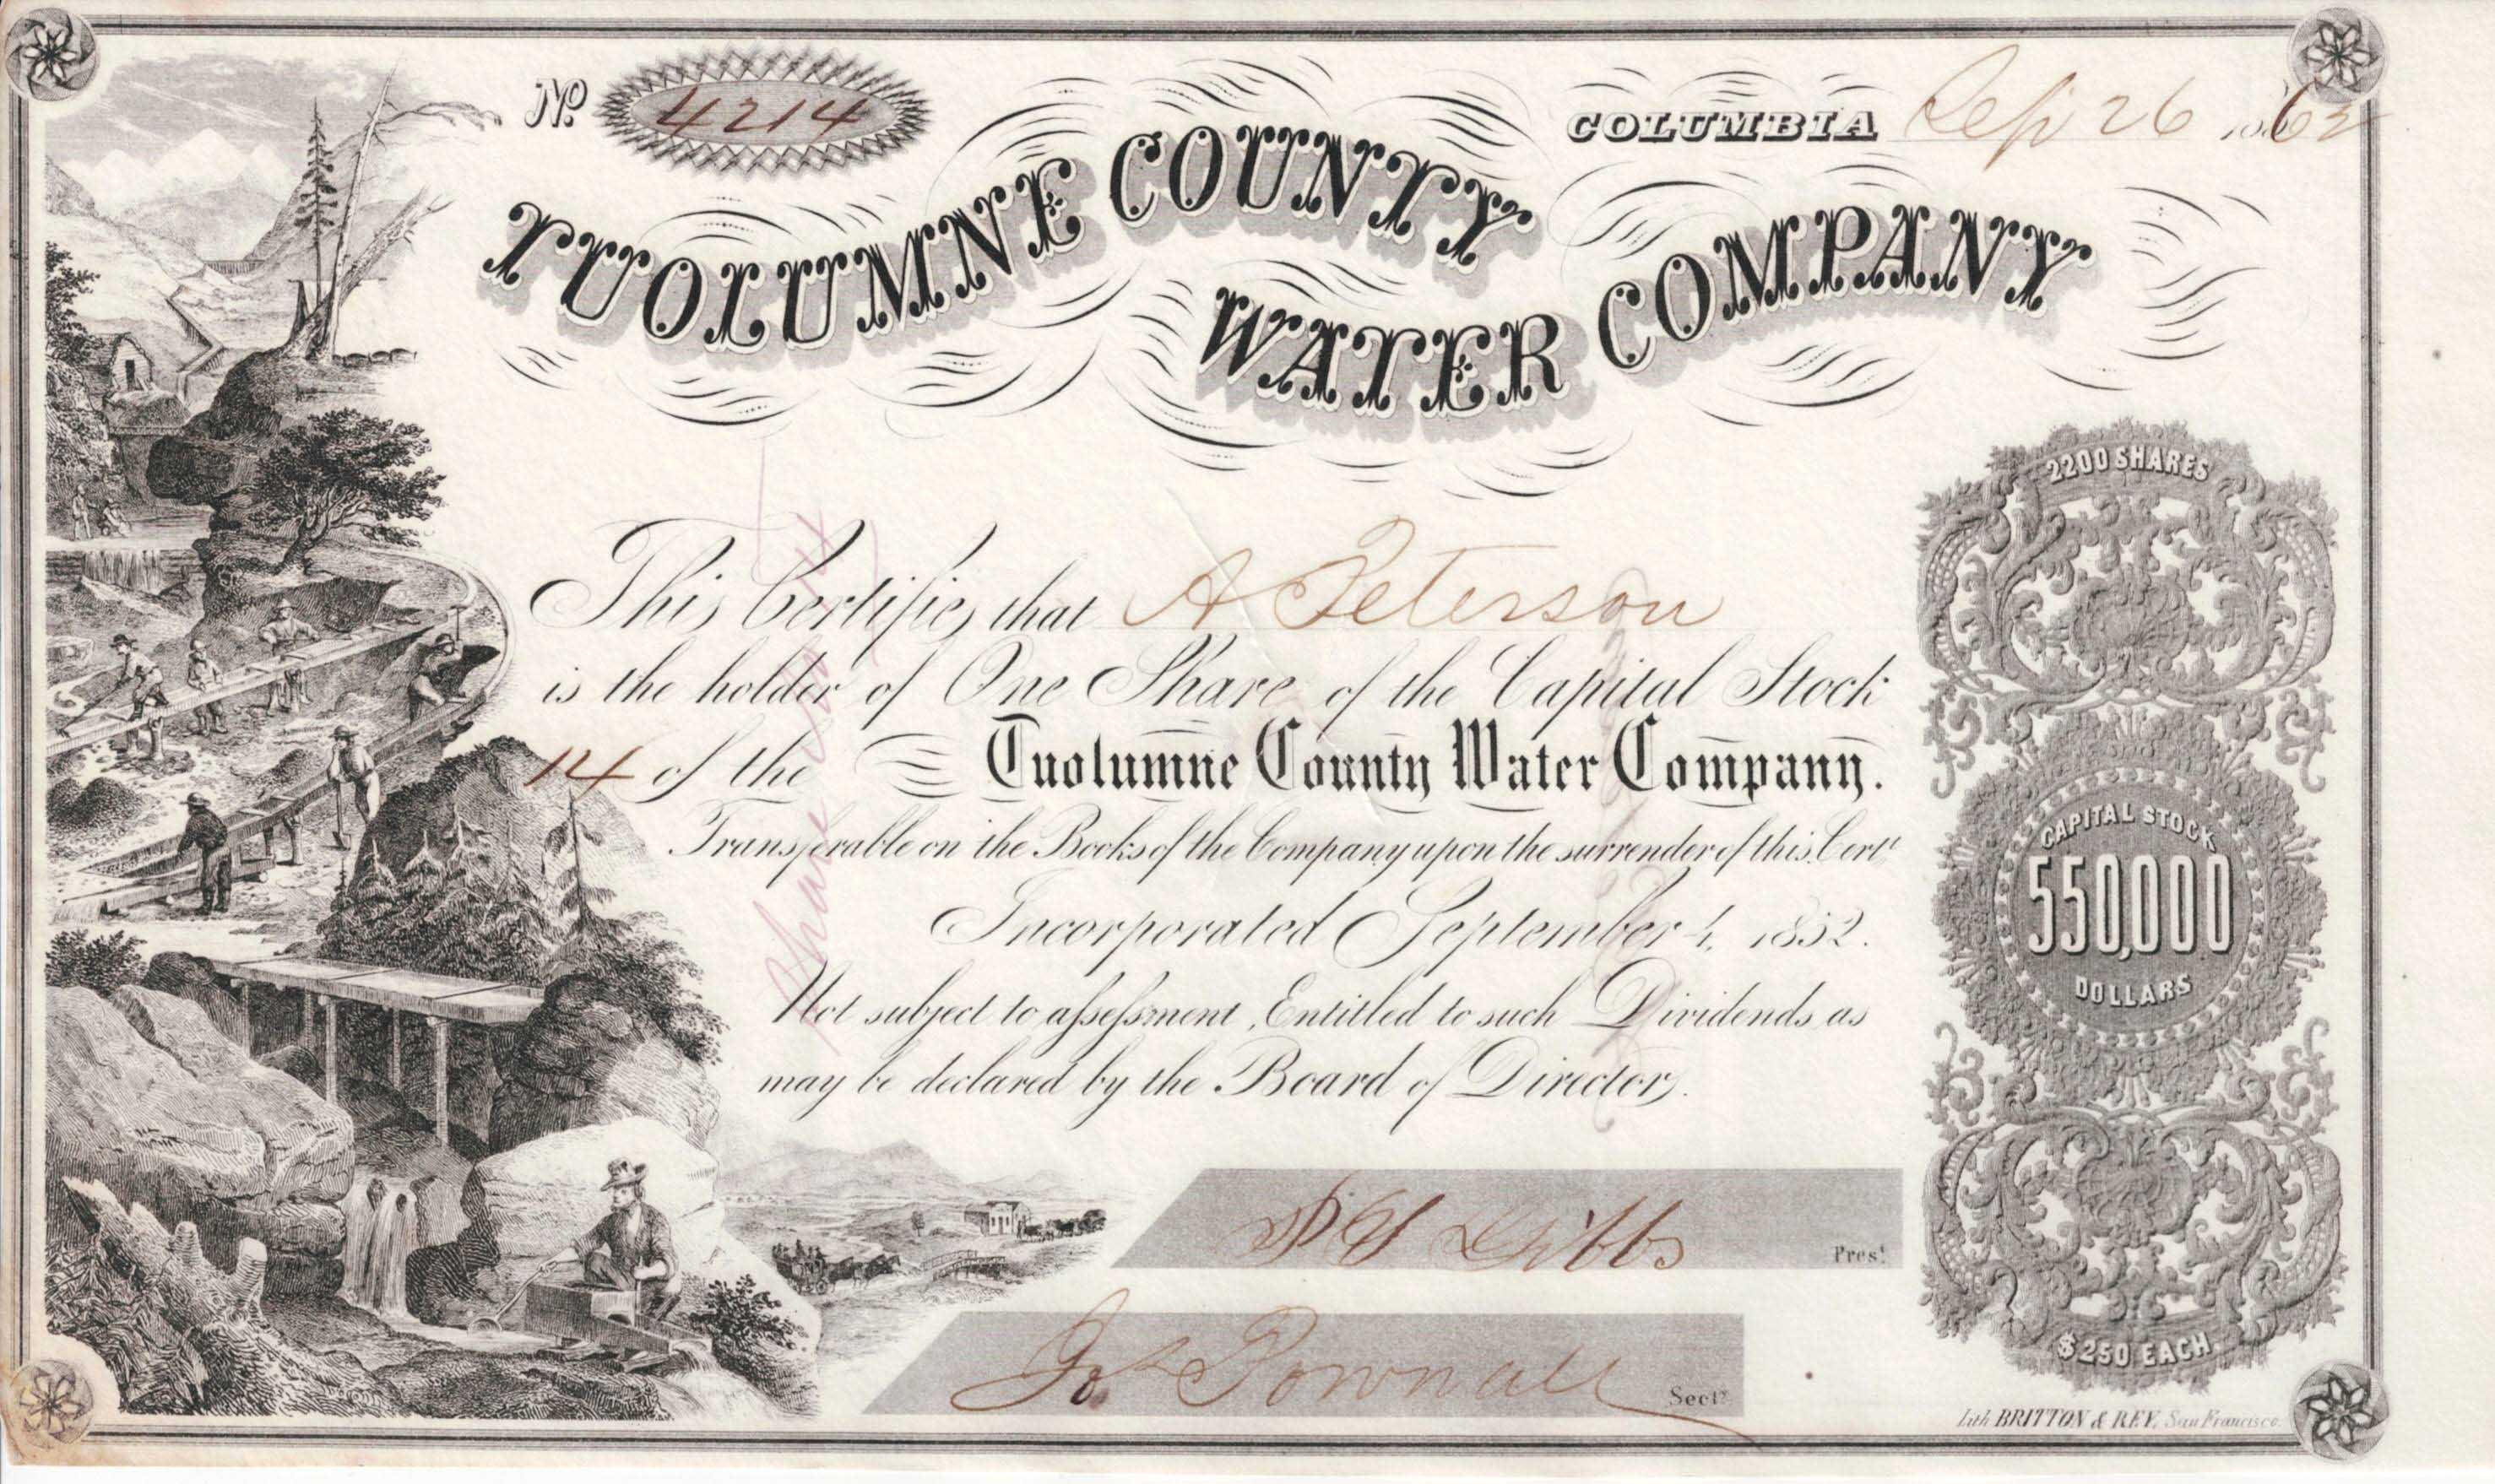 No. 4214
COLUMBIA Sep 26 1862
TUOLUMNE COUNTY
WATER COMPANY
2200 SHARES
This Certifies that A Peterson
is the holder of One Share of the Capital Stock
14 of the Tuolumne County Water Company.
Transferable on the Books of the Company upon the surrender of this Cert.
Incorporated September 4, 1852.
Not subject to assessment, Entitled to such Dividends as
may be declared by the Board of Directors.
CAPITAL STOCK
550,000
DOLLARS
Gibbs Prest.
Jos Pownall Secty.
$250 EACH.
Lith. BRITTON & REY, San Francisco.